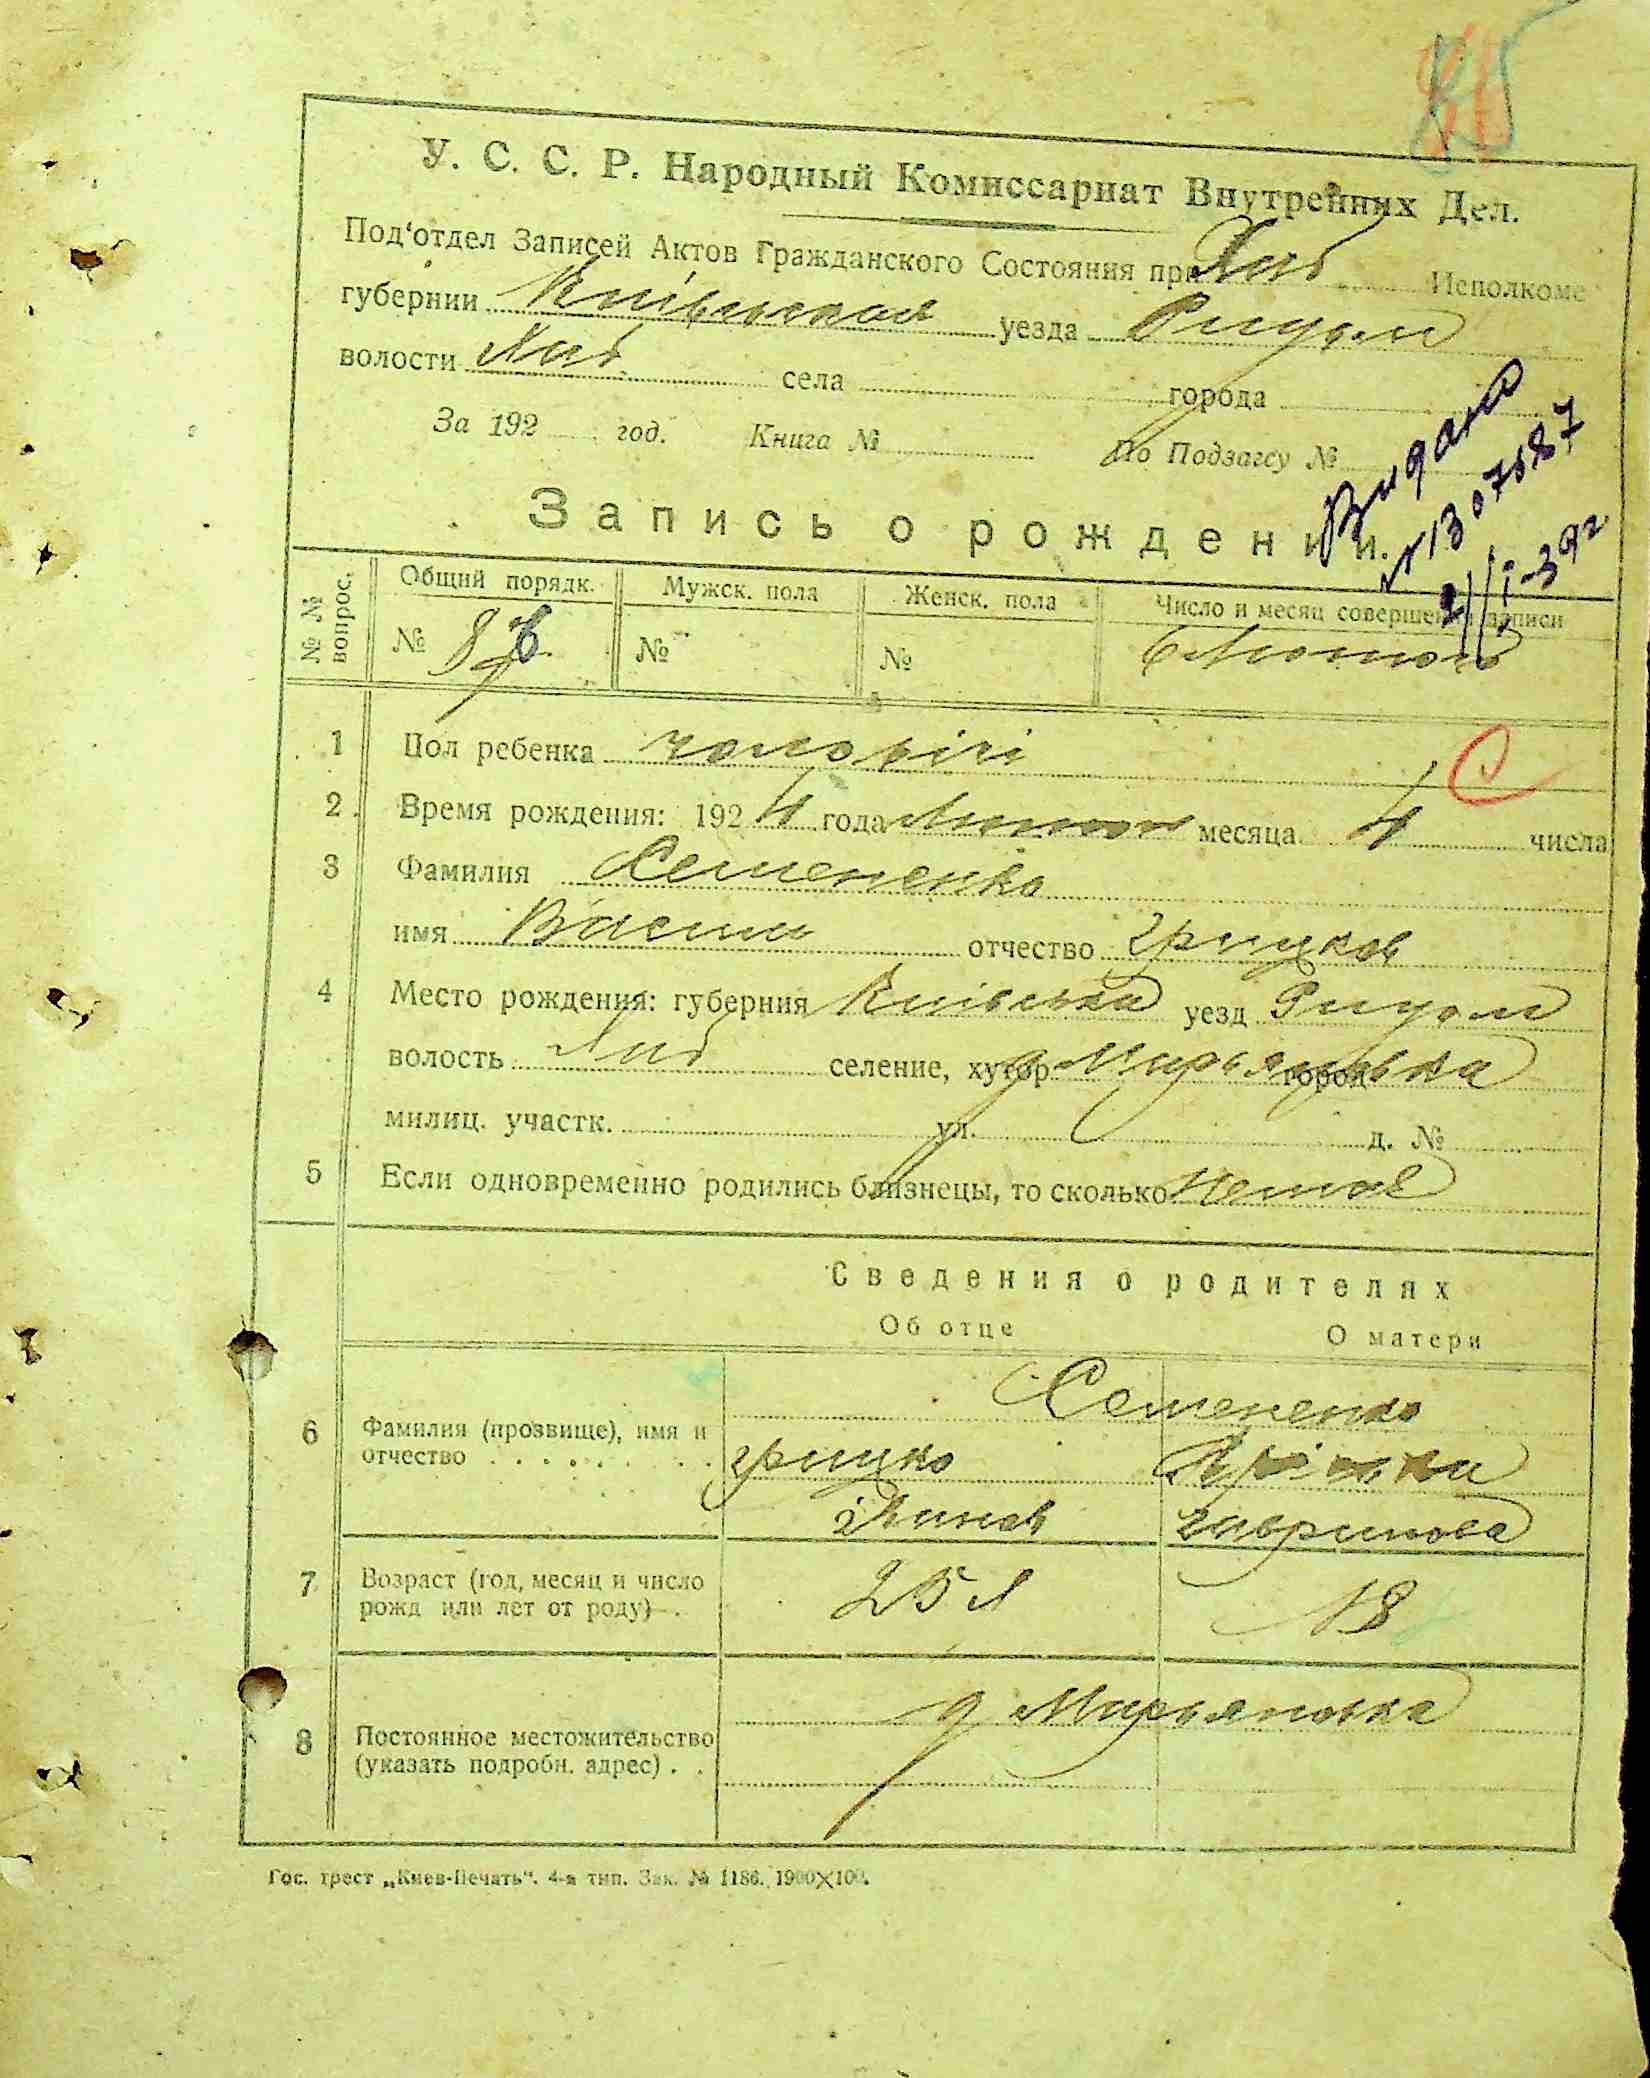 У. С. С. Р. Народный Комиссариат Внутренних Дел.
Под'отдел Записей Актов Гражданского Состояния при Хаб Исполкоме
губернии Київська уезда Радом
волости Хаб села города
За 192 год. Книга № По Подзагсу №
Видано
№ 1307587
2/I-39г
Запись о рождении.
№ № вопрос. Общий порядк. Мужск. пола Женск. пола Число и месяц совершения записи
№ № № 6 Лютого
1 Пол ребенка чоловічі
2 Время рождения: 1924 года Лютого месяца 4 числа
3 Фамилия Семененко
имя Василь отчество Грицков
4 Место рождения: губерния Київська уезд Радом
волость Хаб селение, хутор д Мирьяновка город
милиц. участк. ул. д. №
5 Если одновременно родились близнецы, то сколько Немає
Сведения о родителях
Об отце О матери
Семененко
6 Фамилия (прозвище), имя и отчество Грицко
Гаврилова
7 Возраст (год, месяц и число рожд или лет от роду) 25 л 18
8 Постоянное местожительство (указать подробн. адрес) д Мирьяновка
Гос. трест „Киев-Печать". 4-я тип. Зак. № 1186. 1900×100.